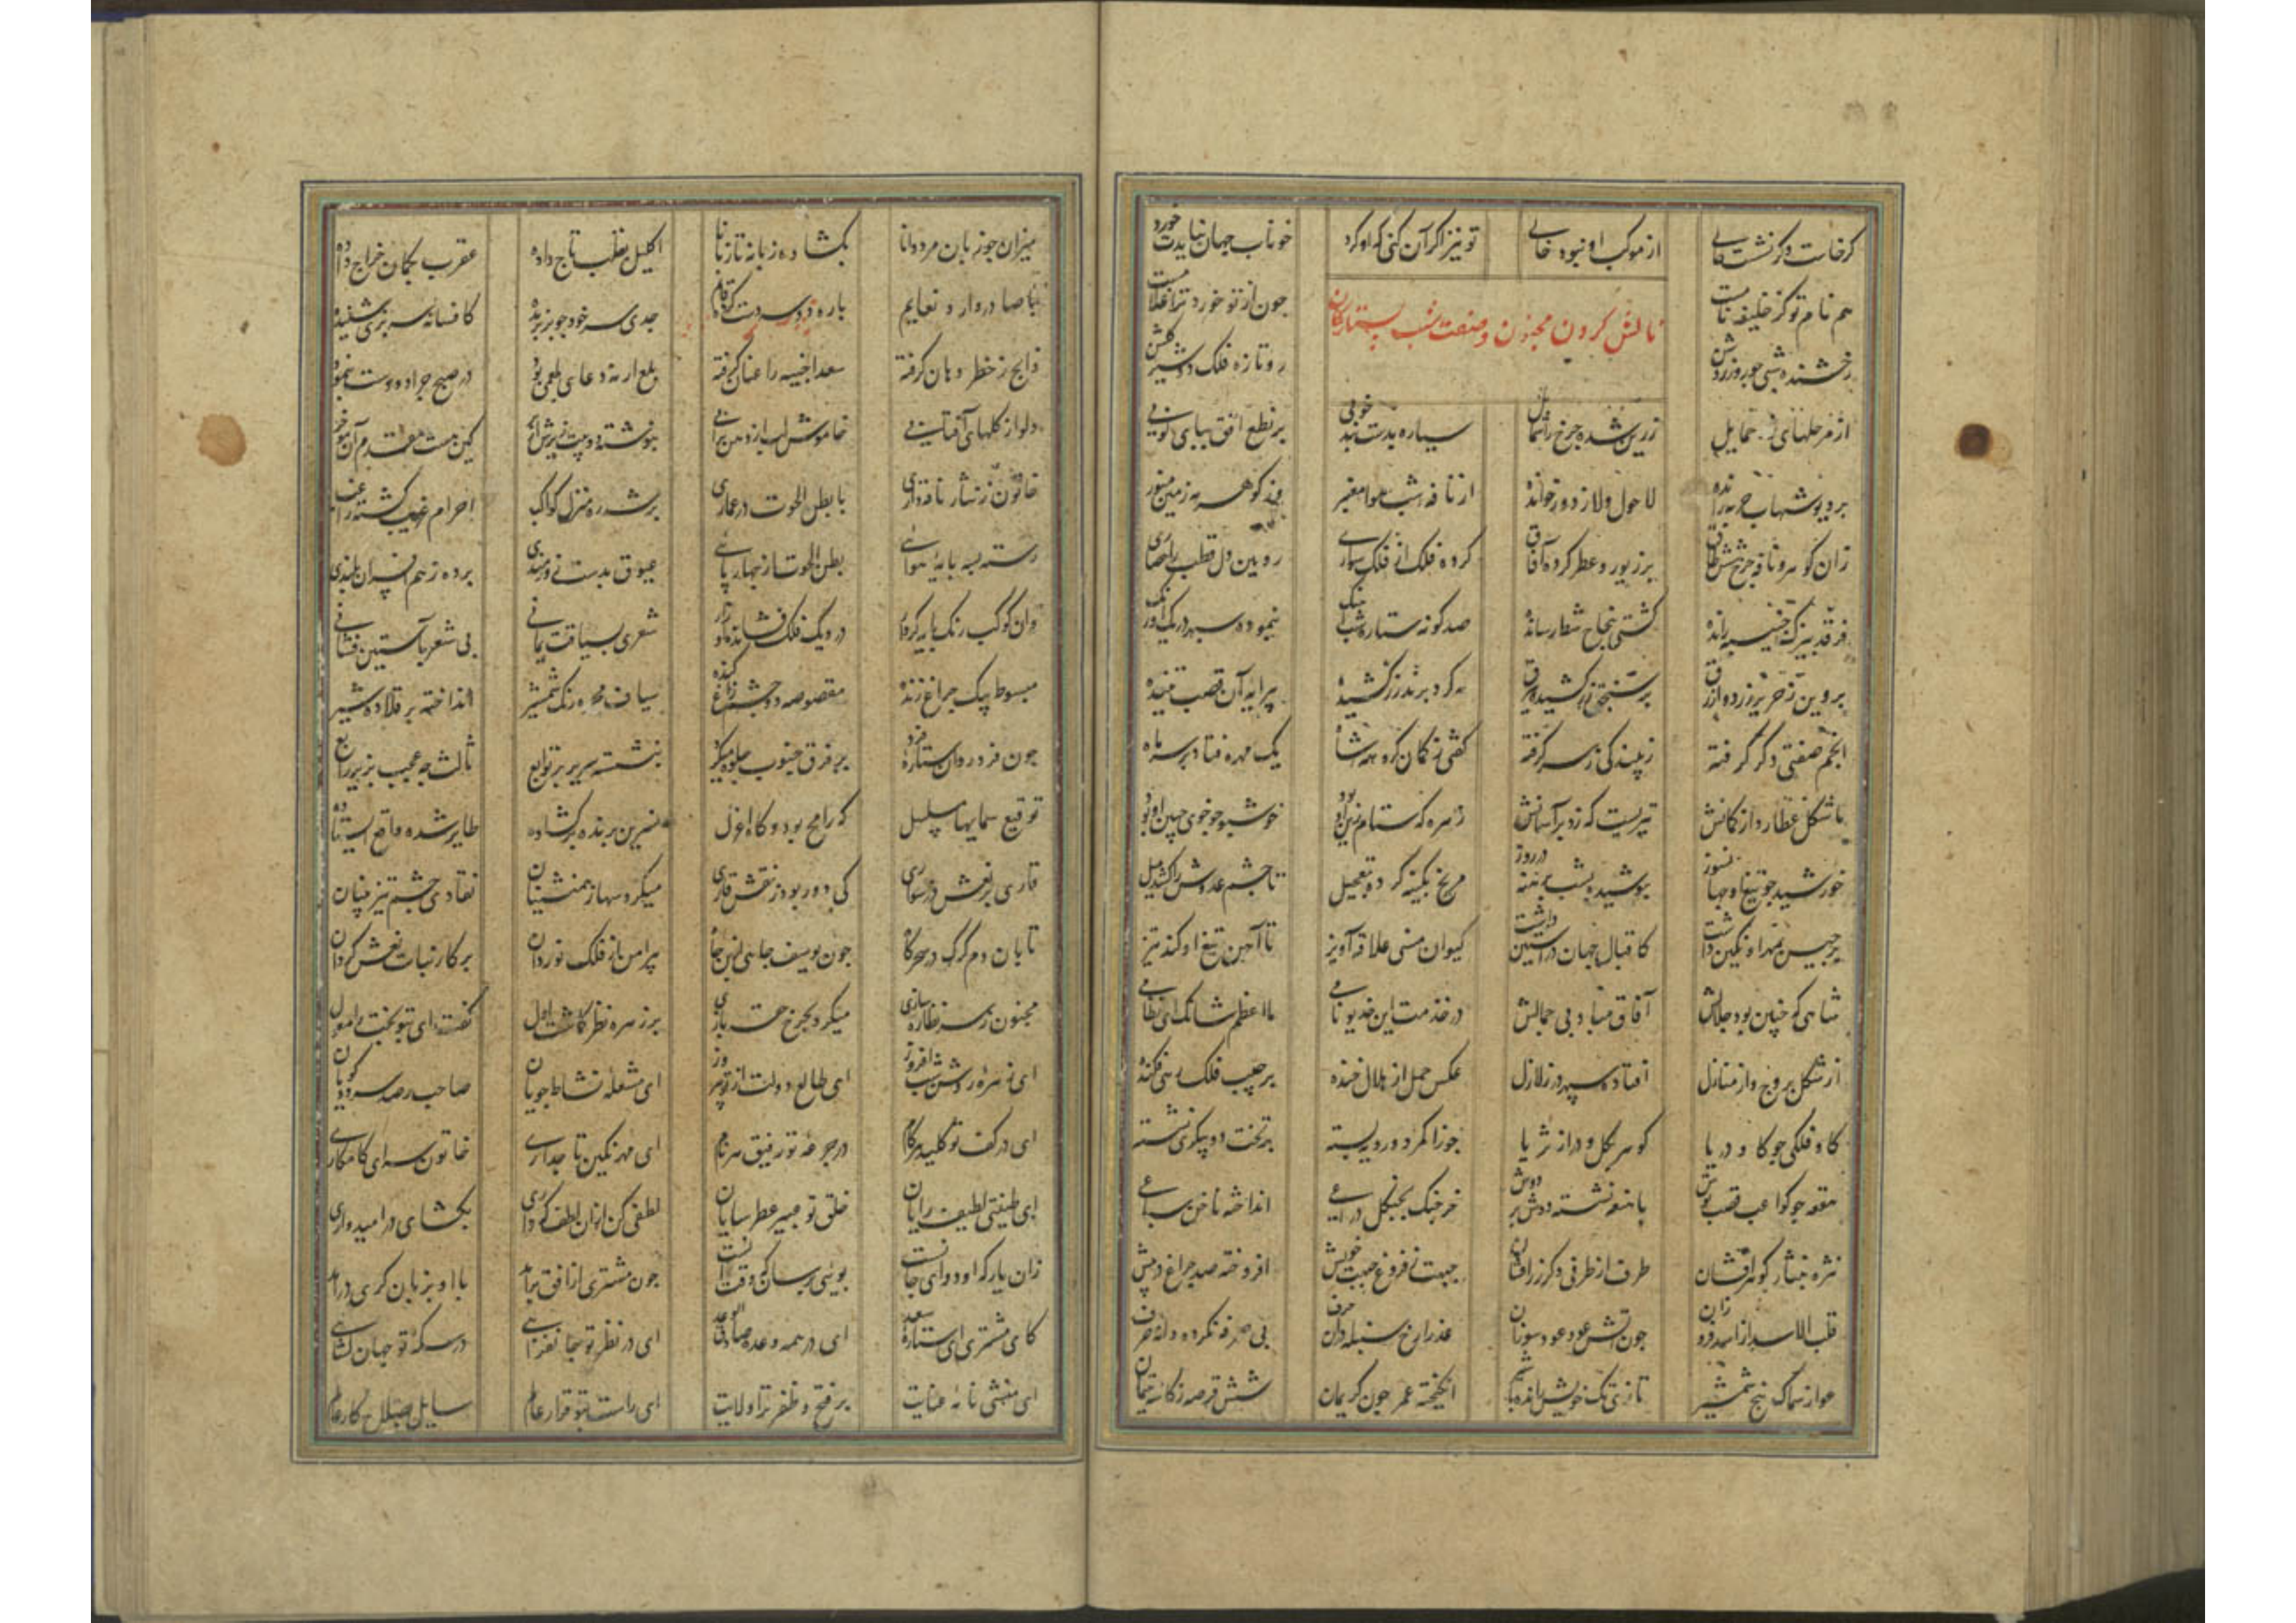 کرخاست وکر نشست از موکب او نبود خالی تو نیز اگر آن کنی که او کرد خوناب جهان نبایدت خورد
هم نام تو کر خلیفه نامست چون از تو خورد ترا غلامست
نالش کردن مجنون و صفت شب و ستارکان
رخشنده شبی چو روز روشن رو تازه فلک کلشن
از مرحلهای زر حمایل زرین شده چرخ را شمایل سیاره بدست بند خوبی بر نطع افق بپای کوبی
بر دیو شهاب حربه رانده لا حول ولا ز دور خوانده از نافه شب هوا معنبر وز کوهر مه زمین منور
زان کوهر و نافه چرخ شش طاق بر زیور و عطر کرده آفاق کرده فلک از فلک سواری رویین دل قطب را حصاری
فرقد بیزک جنیبه رانده کشتی بجناح شط رسانده صد کونه ستاره شب آهنک بنموده سپهر در یک اورنک
پروین ز حریر زرد و ازرق بر سنجق زر کشیده بیرق مه کرد پرند زر کشیده پیرایه آن قصب تنیده
انجم صفتی دکر کرفته زیبندکی ز سر کرفته کفتی ز کمان کروهه شاه یک مهره فتاد بر سر ماه
یا شکل عطارد از کمانش تیریست که زد بر آسمانش زهره که ستام زین او بود خوشبو چو خوی جبین او بود
خورشید چو تیغ او جهانسوز پوشیده بشب برهنه در روز مریخ بکینه کرده تعجیل تا چشم عدوش را کشد میل
برجیس مهر او نکین داشت کاقبال جهان در آستین داشت کیوان مسنی علاقه آویز تا آهن تیغ او کند تیز
شاهی که چنین بود جلالش آفاق مباد بی جمالش در خدمت این خدیو نامی ما اعظم شانک ای نظامی
از شکل بروج و از منازل افتاده سپهر در زلازل عکس حمل از هلال خنده بر جیب فلک زهی فکنده
کاو فلکی چو کاو دریا کوهر بکلو در از ثریا جوزا کمر دو رویه بسته بر تخت دو پیکری نشسته
هقعه چو کواعب قصب پوش با هنعه نشسته دوش بر دوش خرچنک بچنکل ذراعی انداخته ناخن سباعی
نثره بنثار کوهر افشان طرفه از طرفی دکر زر افشان جبهت ز فروغ جبهت خویش افروخته صد چراغ در پیش
قلب الاسد از اسد فروزان چون آتش عود عود سوزان عذرا رخ سنبله در آن حرف بی صرفه نکرده دانه صرف
عوا ز سماک هیچ شمشیر تازی سک خویش رانده انکیخته غفر چون کریمان شش قرصه ز کاسه یتیمان
میزان چو زبان مرد دانا بکشاده زبانه تازبانا اکلیل بقلب تاج داده عقرب بکمان خراج داده
با صادر و وارد نعایم بلده دو سه دست کرده قایم جدی سر خود چو بز بریده کافسانه سر بزی شنیده
ذابح ز خطر دهان کرفته سعد اخبیه را عنان کرفته بلع ارنه دعای بلعمی بود در صبح چرا دو دست بنمود
دلو از کلهای آفتابی خاموش لب از دهن پر آبی بنوشته دو بیت زیرش از کین هست مقدم آن مؤخر
خاتون رشا ز ناقه داری با بطن الحوت در عماری بر شه ره منزل کواکب احرام غریب کشته راغب
رسته به بایه هوائی بطن الحوت از چهارپائی عیوق بدست زورمندی برده ز هم افسران بلندی
وان کوکب رنک پایه کردار در دیک فلک فشانده افزار شعری بسیاقت یمانی بی شعر بآستین فشانی
مبسوط بیک چراغ زنده مقبوضه دو چشم زاغ کنده سیاف مجره رنک شمشیر انداخته بر قلاده شیر
چون فرد روان ستاره فرد بر فرق جنوب جلوه میکرد بنشسته سریر بر توابع ثالث چه عجب بزیر رابع
توقیع سماکها مسلسل که رامح بود و کاه اعزل نسرین پرنده پر کشاده طایر شده واقع ایستاده
قاری بر نعش در سواری کی دور بود ز نعش قاری میکرد سها ز همنشینان نقادی چشم تیز بینان
تابان دم کرک در سحرکاه چون یوسف چاهی از بن چاه پیرامن آن فلک نوردان پرکار بنات نعش کردان
مجنون ز سر نظاره سازی میکرد بچرخ حقه بازی بر زهره نظر کماشت اول کفت ای بتو بخت را معول
ای زهره روشن شب افروز ای طالع دولت از تو پیروز ای مشعله نشاط جویان صاحب رصد سرود کویان
ای در کف تو کلید هر کام در جرعه تو رفیق هر نام ای مهر نکین تاجداری خاتون سرای کامکاری
ای طینتی لطیف رایان خلق تو عبیر عطر سایان لطفی کن از آن لطف که داری بکشای در امیدواری
زان یار که او دوای جانست بوئی برسان که وقت آنست چون مشتری از افق برآمد با او بزبان کری درآمد
کای مشتری ای ستاره سعد ای در همه وعده صادق الوعد ای در نظر تو جانفزائی در سکه تو جهان کشائی
ای منشی نامه عنایت بر فتح و ظفر ترا ولایت ای راست بتو قرار عالم